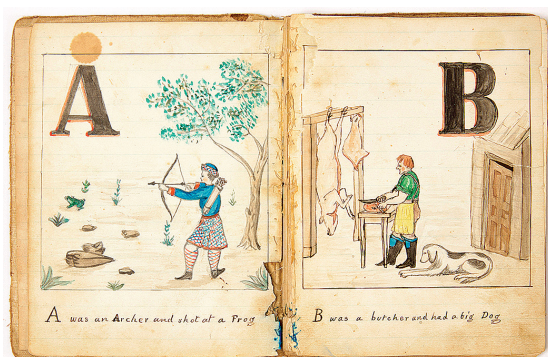 A
A was an Archer and shot at a Frog
B
B was a butcher and had a big Dog